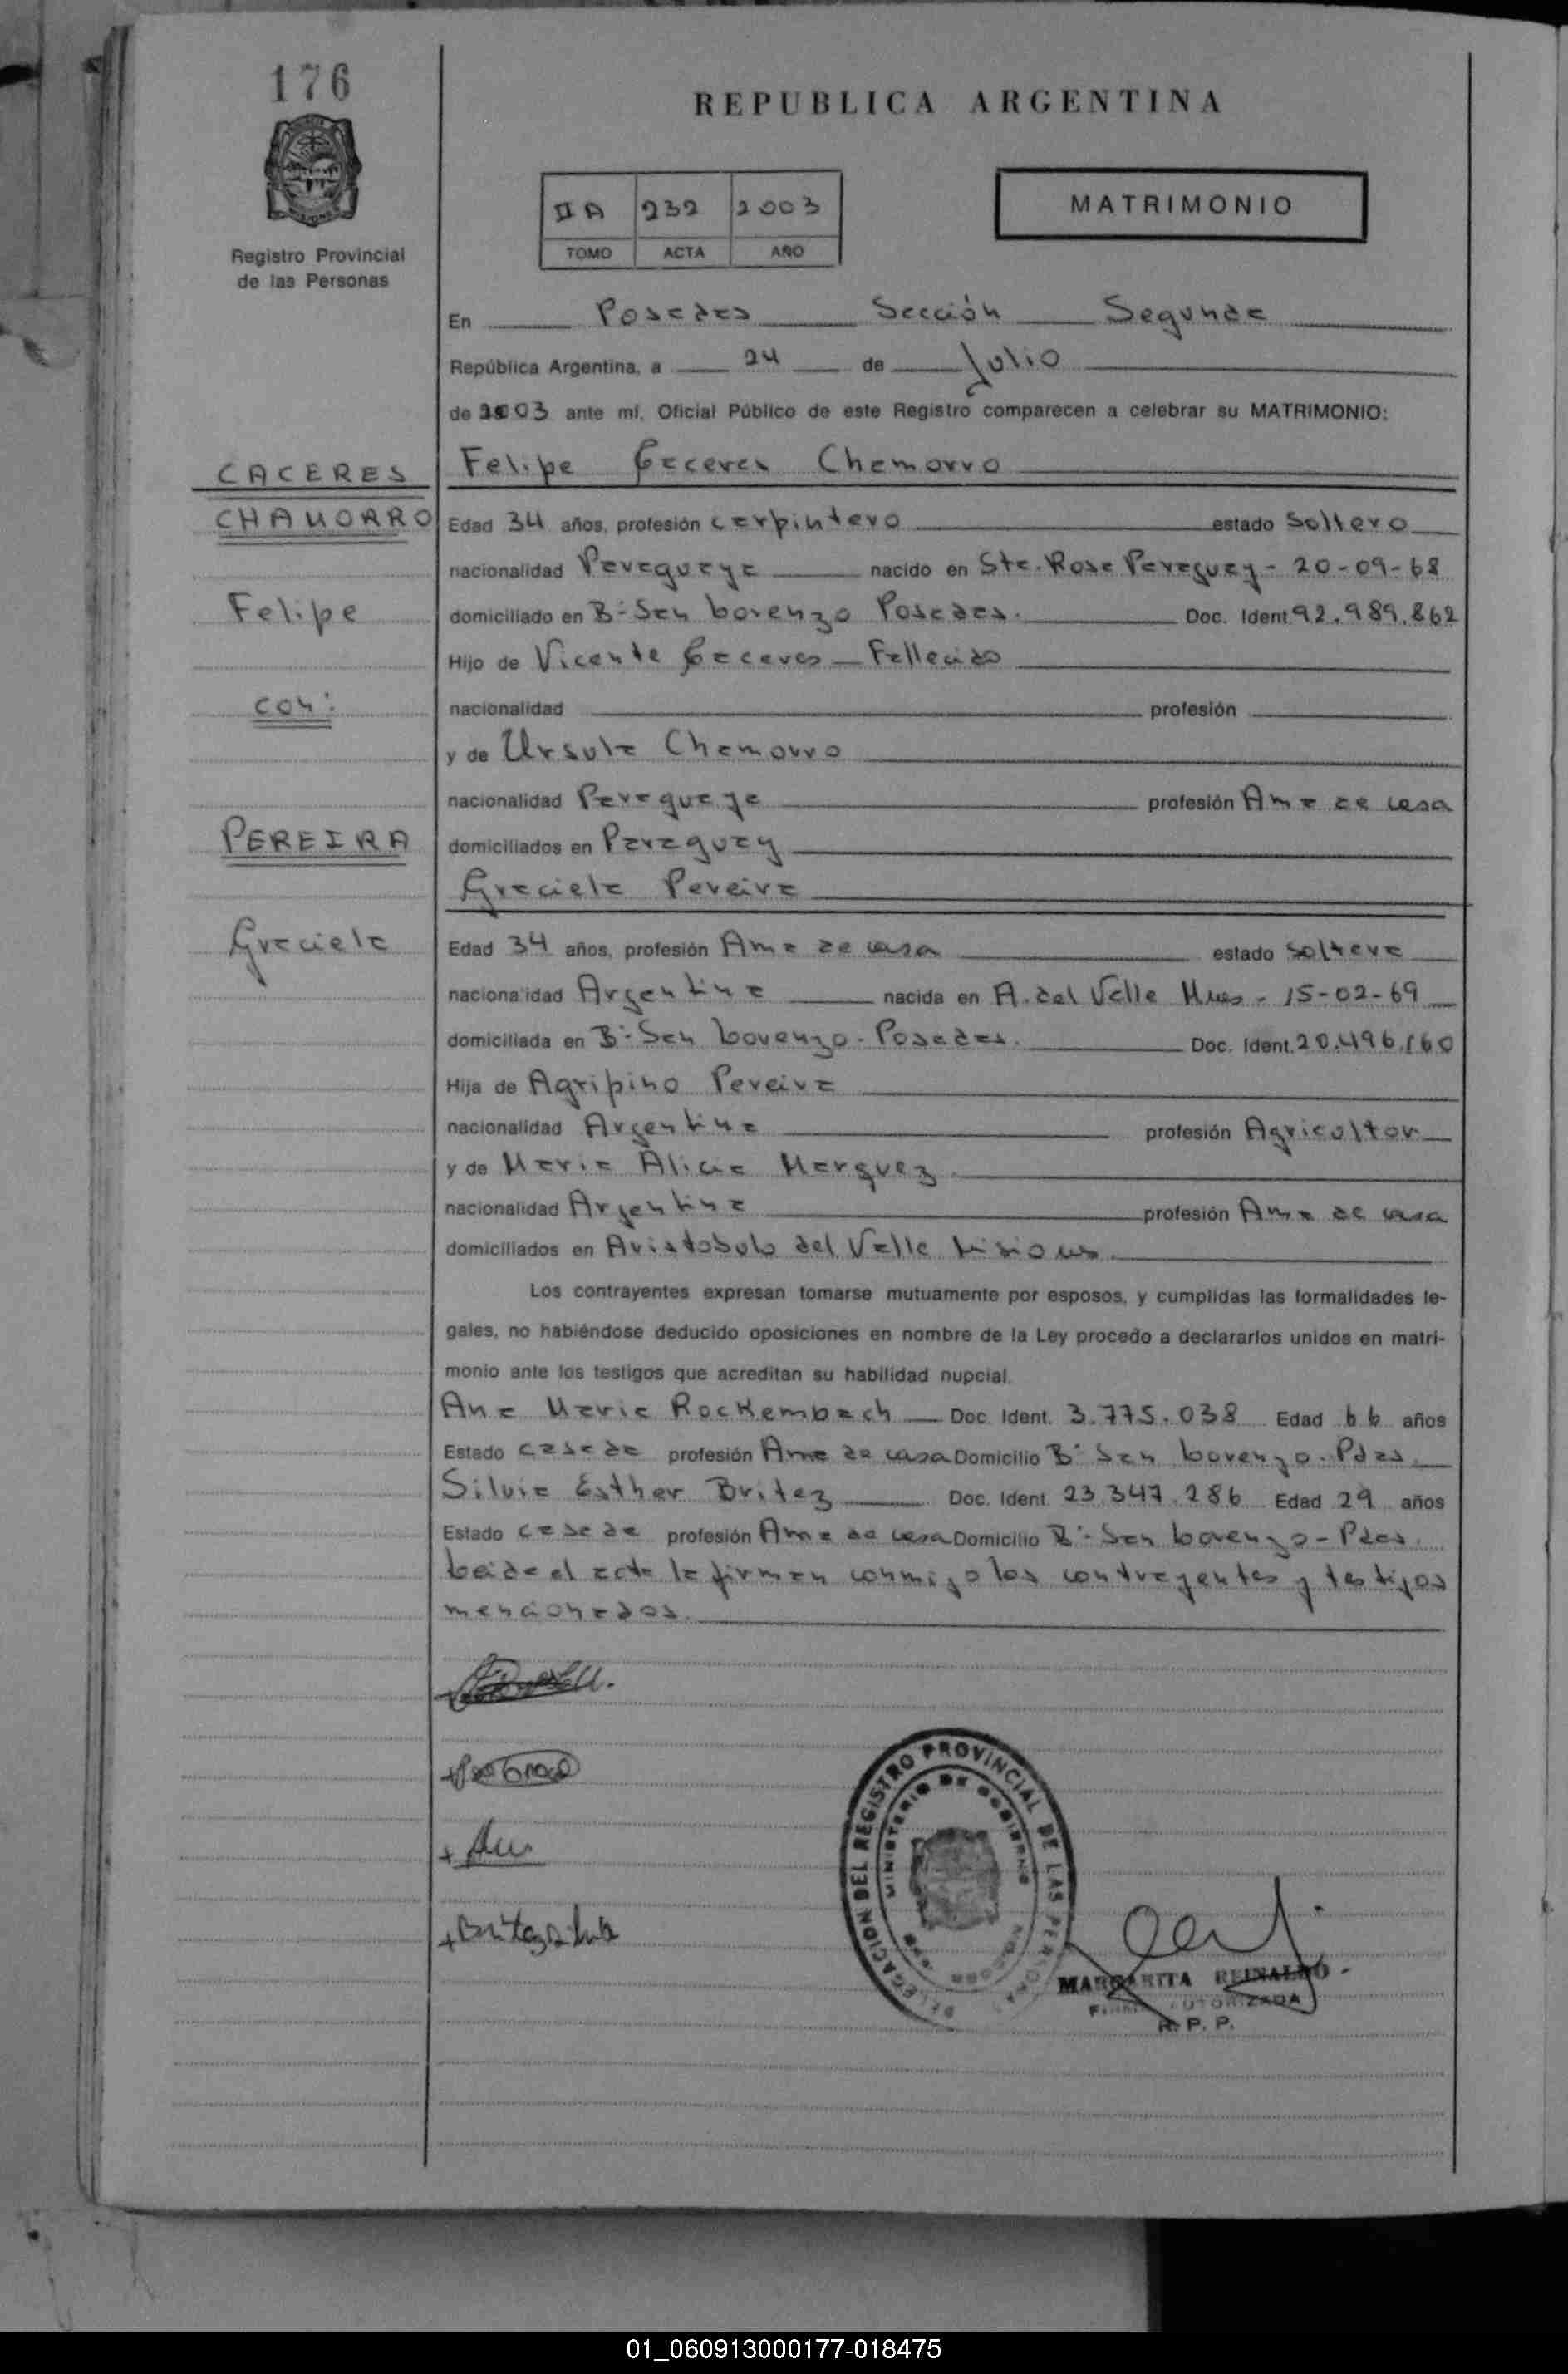 176
REPUBLICA ARGENTINA
Registro Provincial
de las Personas
II A 232 2003
TOMO ACTA AÑO
MATRIMONIO
En Posadas Sección Segunda
República Argentina, a 24 de Julio
de 2003 ante mí, Oficial Público de este Registro comparecen a celebrar su MATRIMONIO:
CACERES
CHAMORRO
Felipe
con:
PEREIRA
Graciela
Felipe Caceres Chamorro
Edad 34 años, profesión carpintero estado Soltero
nacionalidad Paraguaya nacido en Sta. Rosa Paraguay - 20-09-68
domiciliado en B: San Lorenzo Posadas. Doc. Ident. 92.989.862
Hijo de Vicente Caceres - Fallecido
nacionalidad profesión
y de Ursula Chamorro
nacionalidad Paraguaya profesión Ama de casa
domiciliados en Paraguay
Graciela Pereira
Edad 34 años, profesión Ama de casa estado Soltera
nacionalidad Argentina nacida en A. del Valle Mnes - 15-02-69
domiciliada en B: San Lorenzo - Posadas. Doc. Ident. 20.496.160
Hija de Agripino Pereira
nacionalidad Argentina profesión Agricultor
y de Maria Alicia Marquez
nacionalidad Argentina profesión Ama de casa
domiciliados en Aristobulo del Valle Misiones.
Los contrayentes expresan tomarse mutuamente por esposos, y cumplidas las formalidades le-
gales, no habiéndose deducido oposiciones en nombre de la Ley procedo a declararlos unidos en matri-
monio ante los testigos que acreditan su habilidad nupcial.
Ana Maria Rockembach Doc. Ident. 3.775.038 Edad 66 años
Estado casada profesión Ama de casa Domicilio B: San Lorenzo - Pdas.
Silvia Esther Britez Doc. Ident. 23.347.286 Edad 29 años
Estado casada profesión Ama de casa Domicilio B: San Lorenzo - Pdas.
Leida el acta la firman conmigo los contrayentes y testigos
mencionados.
DELEGACION DEL REGISTRO PROVINCIAL DE LAS PERSONAS
MINISTERIO DE GOBIERNO
MARGARITA REINALDO
FIRMA AUTORIZADA
R. P. P.
01_060913000177-018475